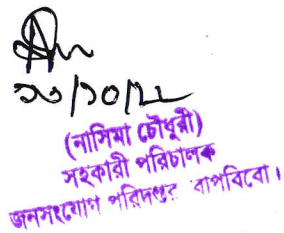 (নাসিমা চৌধুরী)
সহকারী পরিচালক
জনসংযোগ পরিদপ্তর বাপবিবো।